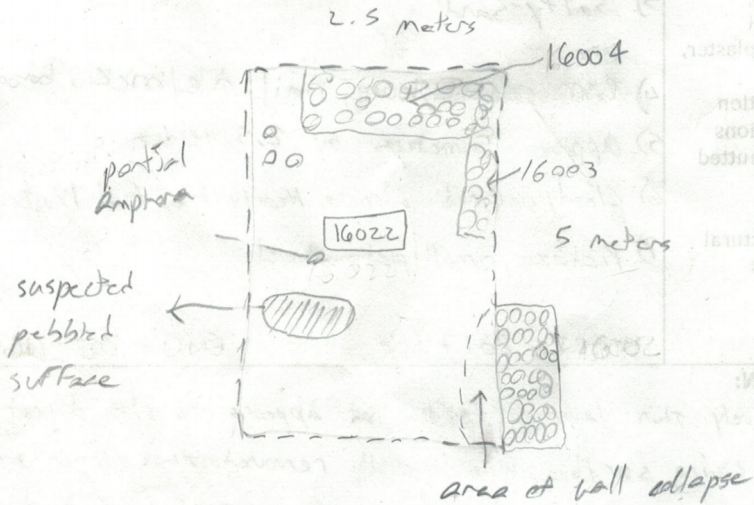 2.5 meters
16004
16003
partial
amphora
16022
5 meters
suspected
pebbled
surface
area of wall collapse
plaster,